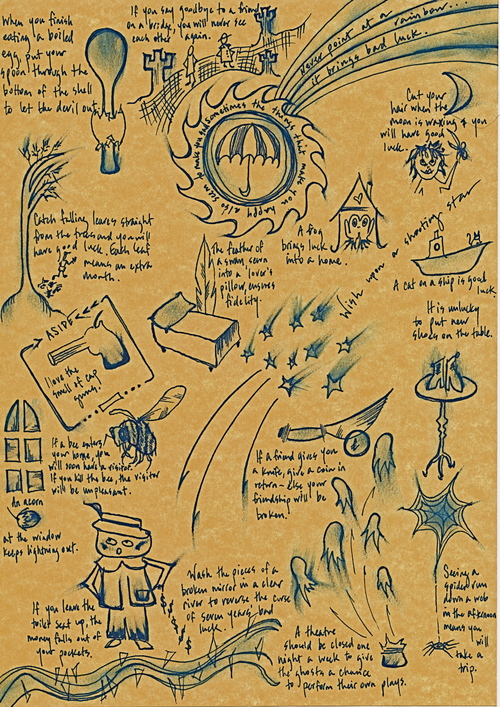 When you finish
eating a boiled
egg, put your
spoon through the
bottom of the shell
to let the devil out.
If you say goodbye to a friend
on a bridge, you will never see
each other again.
Never point at a rainbow...
it brings bad luck.
Cut your
hair when the
moon is waxing & you
will have good
luck.
sometimes the things that make you happy also seem to make you sad
Catch falling leaves straight
from the trees and you will
have good luck. Each leaf
means an extra
month.
The feather of
a swan, sewn
into a lover's
pillow, ensures
fidelity.
A frog
brings luck
into a home.
Wish upon a shooting star
A cat on a ship is good
luck
It is unlucky
to put new
shoes on the table.
ASIDE
I love the
smell of cap
guns!
If a bee enters
your home, you
will soon have a visitor.
If you kill the bee, the visitor
will be unpleasant.
An acorn
at the window
keeps lightning out.
If a friend gives you
a knife, give a coin in
return - else your
friendship will be
broken!
If you leave the
toilet seat up, the
money falls out of
your pockets.
Wash the pieces of a
broken mirror in a clear
river to reverse the curse
of seven years bad
luck.
A theatre
should be closed one
night a week to give
the ghosts a chance
to perform their own plays.
Seeing a
spider run
down a web
in the afternoon
means you
will
take a
trip.